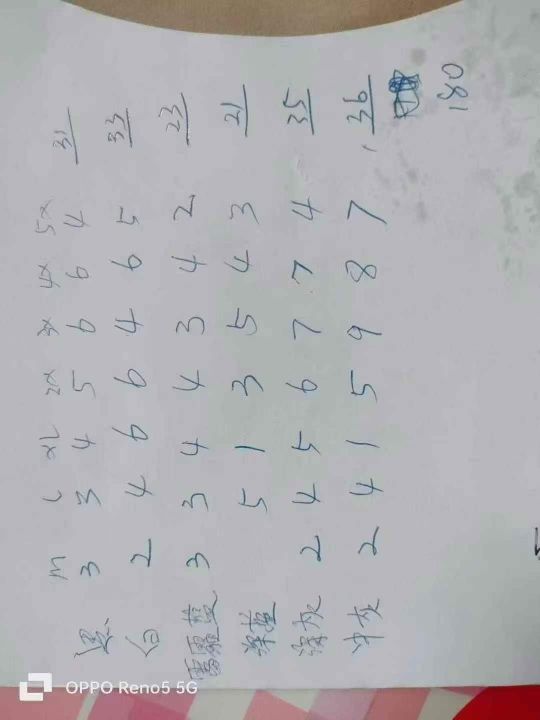 M L XL 2X 3X 4X 5X
黑 3 3 4 5 6 6 4 31
白 2 4 6 6 4 6 5 33
雾霾蓝 3 3 4 4 3 4 2 23
深蓝 5 1 3 5 4 3 21
深灰 2 4 5 6 7 7 4 35
中灰 2 4 1 5 9 8 7 36
180
OPPO Reno5 5G